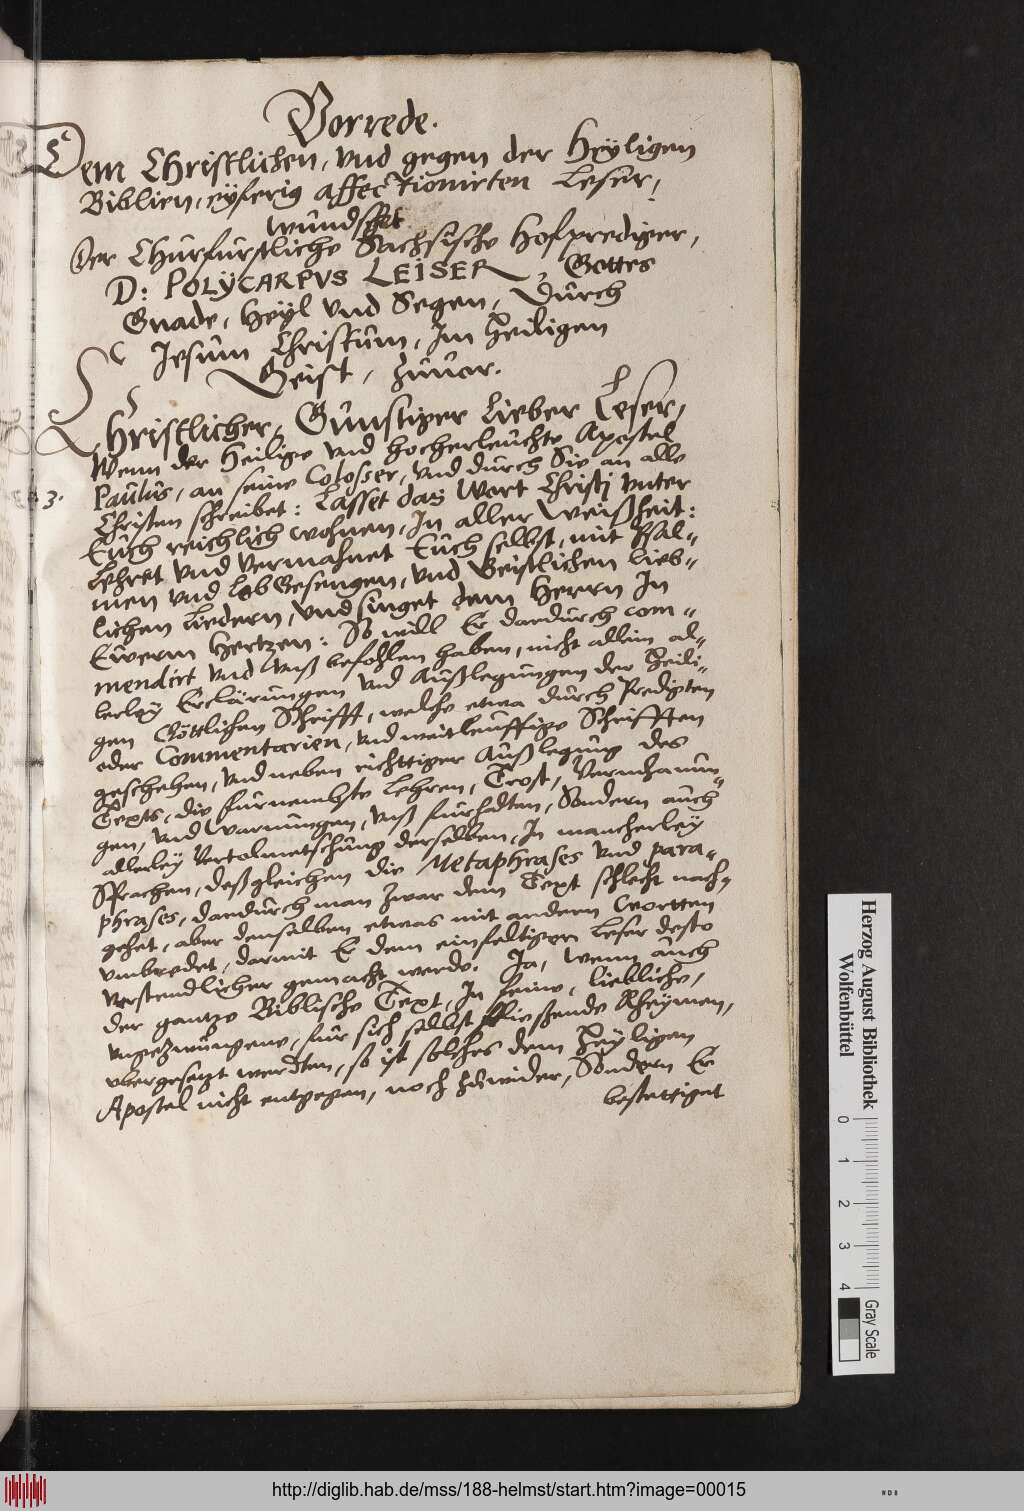 Vorrede.
Dem Christlichen, vnd gegen der Heyligen
Biblien, eyferig affectionirten Leser,
wündschet
Der Churfürstliche Sächsische Hofprediger,
D: POLYCARPVS LEISER, Gottes
Gnade, Heyl vnd Segen, Durch
Jesum Christum, Im Heiligen
Geist, Zuuor.
Christlicher, Günstiger Lieber Leser,
Wenn der Heilige vnd hocherleuchte Apostel
Paulus, an seine Colosser, vnd durch Sie an alle
3.
Christen schreibet: Lasset das Wort Christi vnter
Euch reichlich wohnen, In aller Weißheit:
Lehret vnd vermahnet Euch selbst, mit Psal-
men vnd LobGesengen, vnd Geistlichen lieb-
lichen Liedern, vnd singet dem Herrn In
Ewerm Hertzen: So will Er dardurch com-
mendirt vnd vnß befohlen haben, nicht allein al-
lerley Erclärungen vnd Außlegungen der Heili-
gen Göttlichen Schrifft, welche etwa durch Predigten
oder Commentarien, vnd weitleufftige Schrifften
geschehen, vnd neben richttiger Außlegung des
Texts, die fürnembste Lehren, Trost, Vermhanun-
gen, vnd Warnungen, vnß fürhalten, Sondern auch
allerley Vertolmetschung derselben, In mancherley
Sprachen, deßgleichen die Metaphrases vnd para-
phrases, dardurch man zwar dem Text schlecht nach-
gehet, aber denselben etwas mit andern Wortten
vmbredet, darmit Er dem einfeltigen Leser desto
verstendlicher gemacht werde. Ja, Wenn auch
der gantze Biblische Text, In feine, liebliche,
vngezwungene, für sich selbst fliessende Rheymen,
vbergesetzt werdten, so ist solches dem Heyligen
Apostel nicht entgegen, noch zuwider, Sondern Er
bestettiget
Herzog August Bibliothek
Wolfenbüttel
0 1 2 3 4
Gray Scale
http://diglib.hab.de/mss/188-helmst/start.htm?image=00015